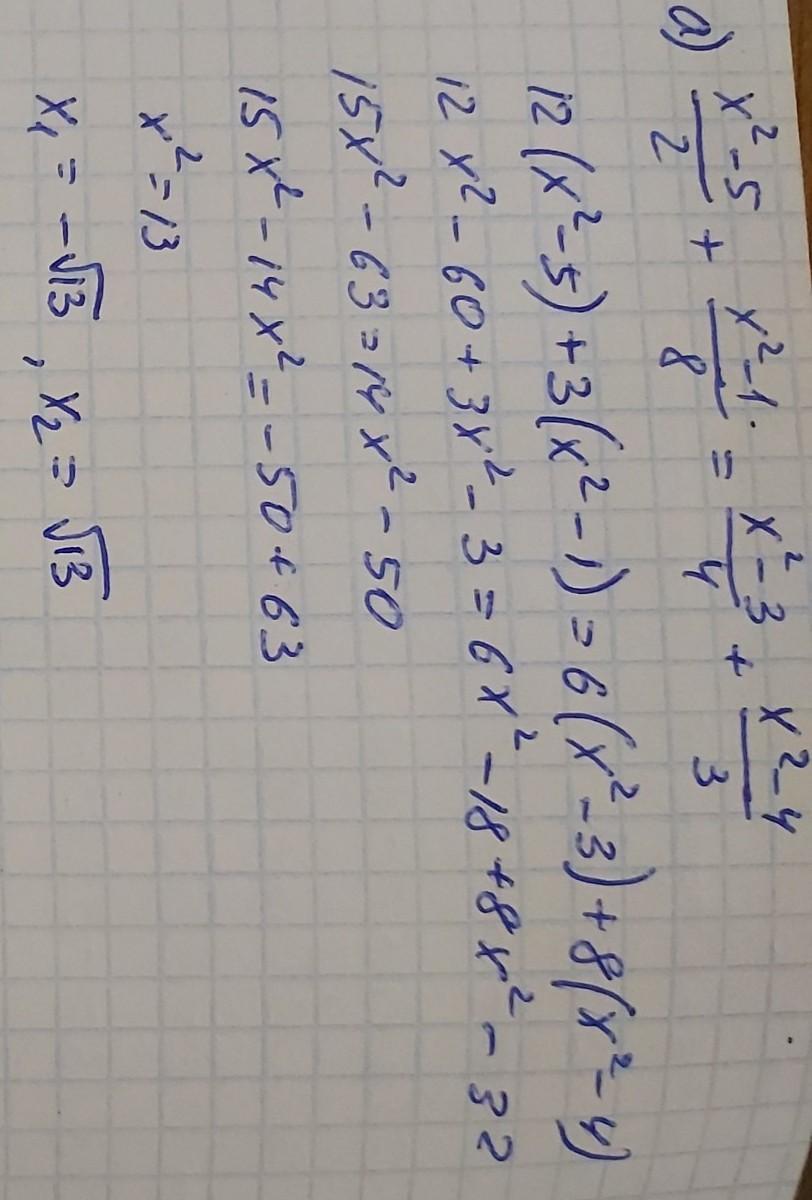 а) (x² - 5)/2 + (x² - 1)/8 = (x² - 3)/4 + (x² - 4)/3
12(x² - 5) + 3(x² - 1) = 6(x² - 3) + 8(x² - 4)
12x² - 60 + 3x² - 3 = 6x² - 18 + 8x² - 32
15x² - 63 = 14x² - 50
15x² - 14x² = -50 + 63
x² = 13
x₁ = -√13, x₂ = √13